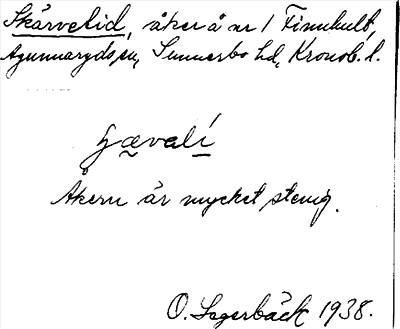 Skärvelid, åker å nr 1 Finnhult,
Agunnaryds sn, Sunnerbo hd, Kronob. l.
Åkern är mycket stenig.
O. Lagerbäck 1938.